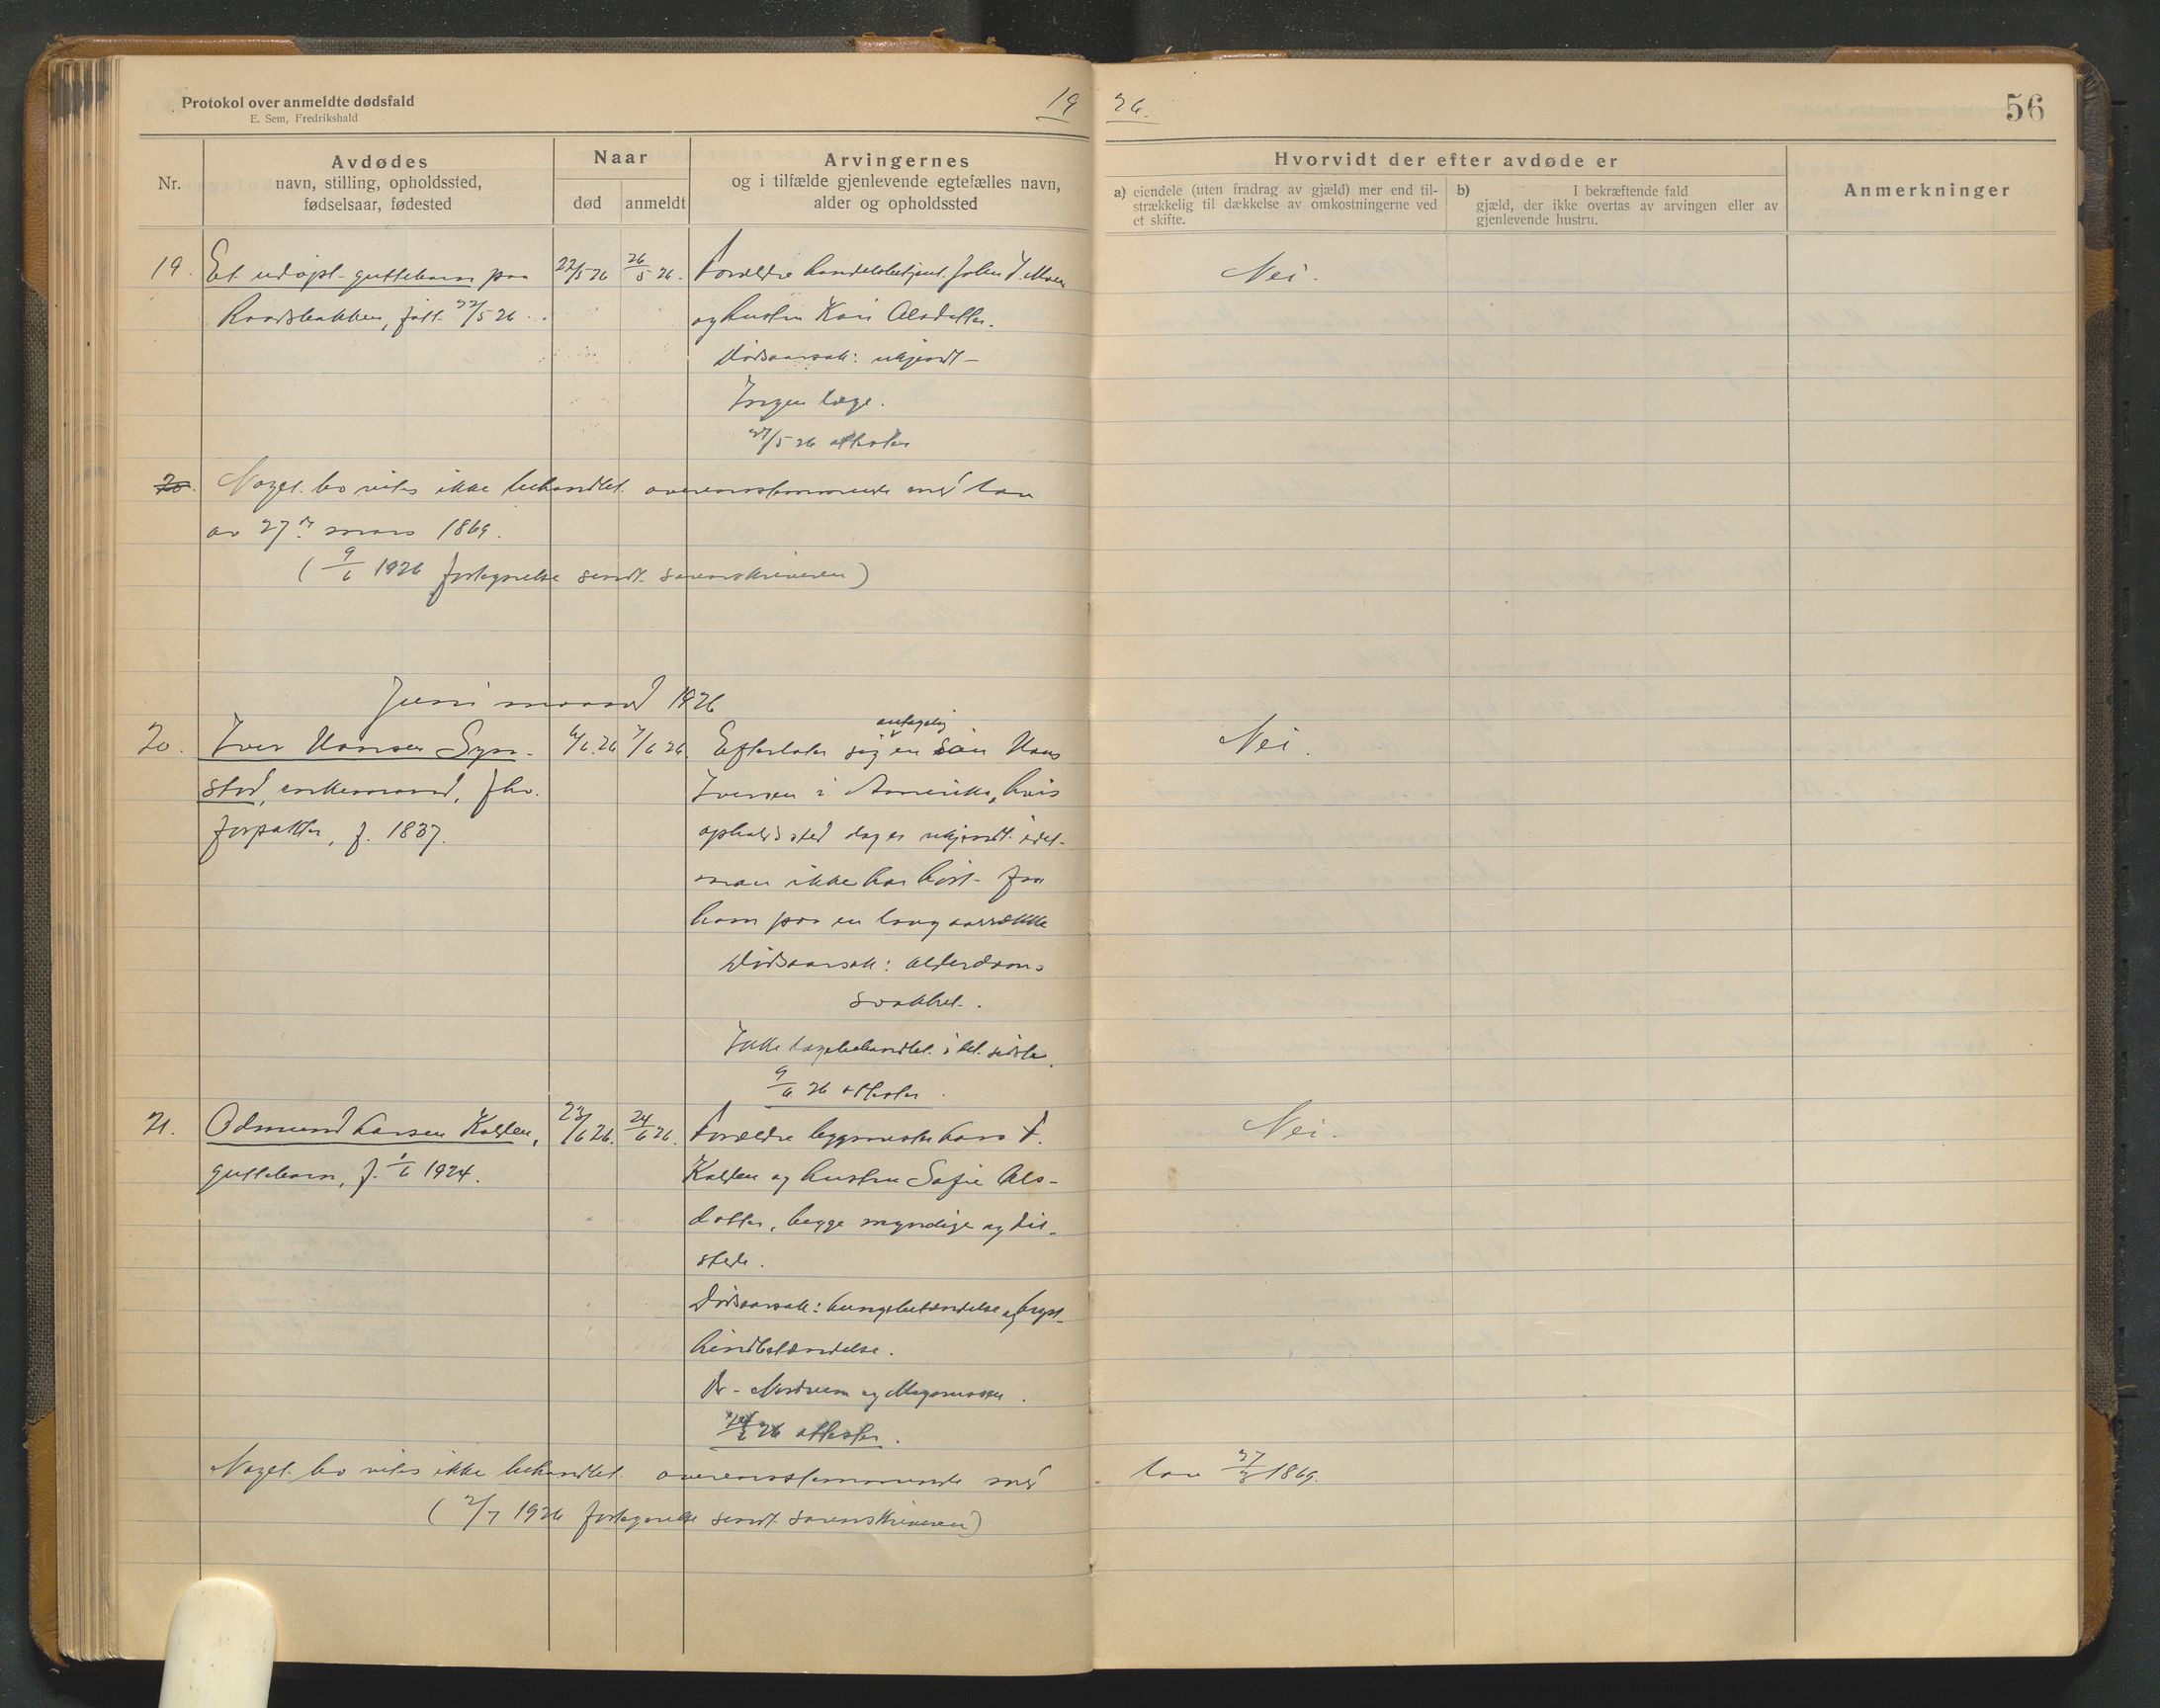 Protokol over anmeldte dødsfald
E. Sem, Fredrikshald
19 26.
56
Nr.
Avdødes
navn, stilling, opholdssted,
fødselsaar, fødested
Naar
død
anmeldt
Arvingernes
og i tilfælde gjenlevende egtefælles navn,
alder og opholdssted
Hvorvidt der efter avdøde er
a) eiendele (uten fradrag av gjæld) mer end til-
strækkelig til dækkelse av omkostningerne ved
et skifte.
b) I bekræftende fald
gjæld, der ikke overtas av arvingen eller av
gjenlevende hustru.
Anmerkninger
19. Et udøpt guttebarn paa
Raadsbakken, født 22/5 26.
22/5 26
26/5 26.
Forældre handelsbetjent John I. Moen
og hustru Kari Olsdatter.
Dødsaarsak: ukjendt
Ingen læge.
27/5 26 attester
Nei.
20. Noget bo vites ikke behandlet overensstemmende med lov
av 27de mars 1869.
(9/6 1926 fortegnelse sendt sorenskriveren)
Juni maaned 1926
20. Iver Hansen Syn-
stod, enkemand, fhv.
forpakter, f. 1837.
6/6.26
7/6 26.
Efterlater sig antagelig en søn Hans
Iversen i Amerika, hvis
opholdssted dog er ukjendt idet
man ikke har hørt fra
ham paa en lang aarrække
Dødsaarsak: Alderdoms
svakhet.
Ikke lægebehandlet i det sidste.
9/6 26 attester.
Nei.
21. Odmund Larsen Kolden,
guttebarn, f. 1/6 1924.
23/6 26.
24/6 26.
Forældre bygmester Lars T.
Kolden og hustru Sofie Ols-
datter, begge myndige og til-
stede.
Dødsaarsak: Lungebetændelse og bryst-
hindebetændelse.
Dr. og Magnussen.
26 attester.
Nei.
Noget bo vites ikke behandlet overensstemmende med
lov 27/3 1869.
(2/7 1926 fortegnelse sendt sorenskriveren)